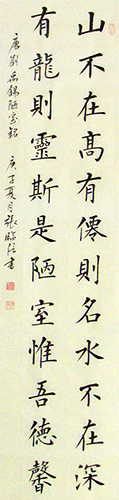 山不在高有僊則名水不在深
有龍則靈斯是陋室惟吾德馨
唐劉禹錫陋室銘 庚子夏月張臨冮書